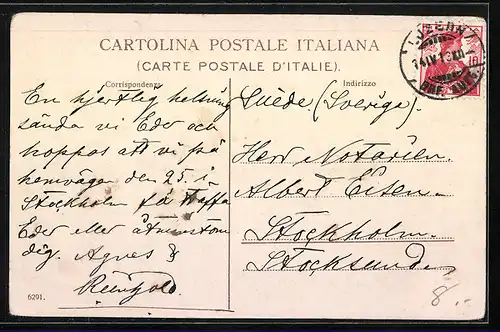 CARTOLINA POSTALE ITALIANA
(CARTE POSTALE D'ITALIE).
Corrispondenza
Indirizzo
En hjertlig helsning
sända vi Eder och
hoppas att vi på
hemvägen den 25. i
Stockholm få träffa
Eder eller åtminstone
dig. Agnes &
Reingold.
6291.
Suède (Sverige).
Herr Notarien
Albert Eisen
Stockholm.
Stocksund.
8.-
LUZERN
10